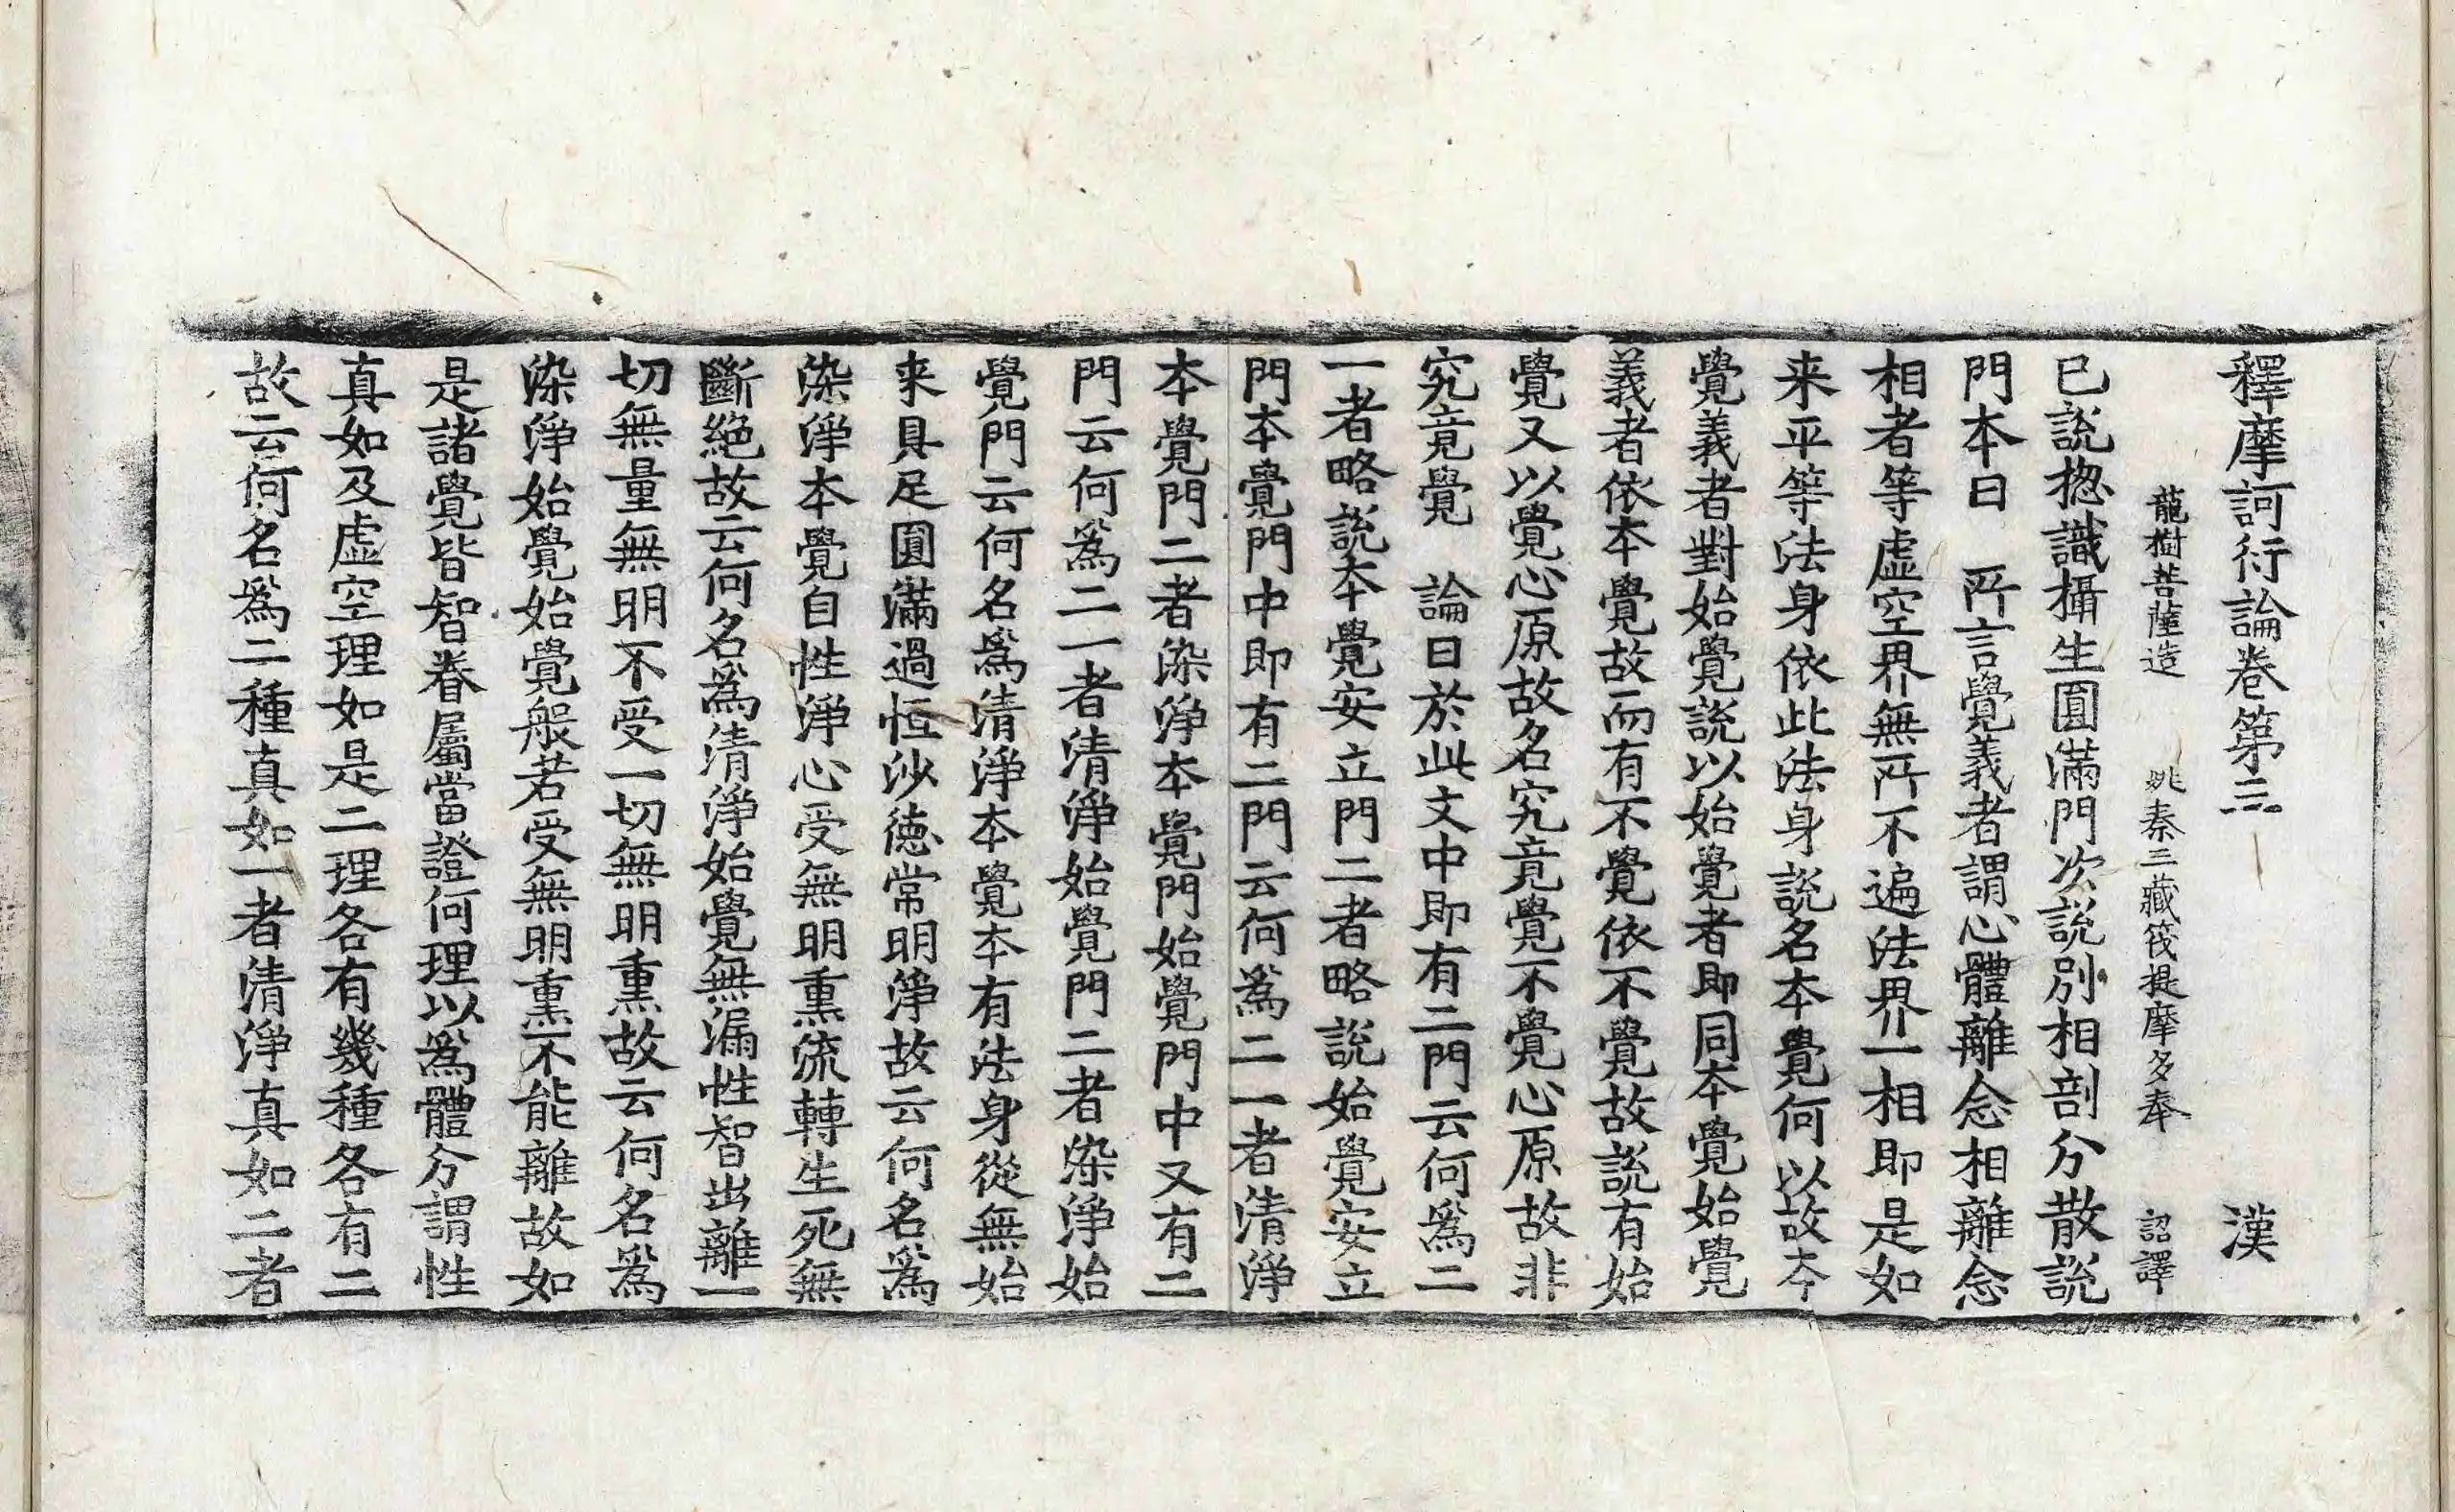 釋摩訶衍論卷第三 漢
龍樹菩薩造 姚秦三藏筏提摩多奉 詔譯
已說揔識攝生圓滿門次說別相剖分散說
門本曰 所言覺義者謂心體離念相離念
相者等虛空界無所不遍法界一相即是如
来平等法身依此法身說名本覺何以故本
覺義者對始覺說以始覺者即同本覺始覺
義者依本覺故而有不覺依不覺故說有始
覺又以覺心原故名究竟覺不覺心原故非
究竟覺 論曰於此文中即有二門云何爲二
一者略說本覺安立門二者略說始覺安立
門本覺門中即有二門云何爲二一者清淨
本覺門二者染淨本覺門始覺門中又有二
門云何爲二一者清淨始覺門二者染淨始
覺門云何名爲清淨本覺本有法身從無始
来具足圓滿過恒沙德常明淨故云何名爲
染淨本覺自性淨心受無明熏流轉生死無
斷絕故云何名爲清淨始覺無漏性智出離一
切無量無明不受一切無明熏故云何名爲
染淨始覺始覺般若受無明熏不能離故如
是諸覺皆智眷屬當證何理以爲體分謂性
真如及虛空理如是二理各有幾種各有二
故云何名爲二種真如一者清淨真如二者